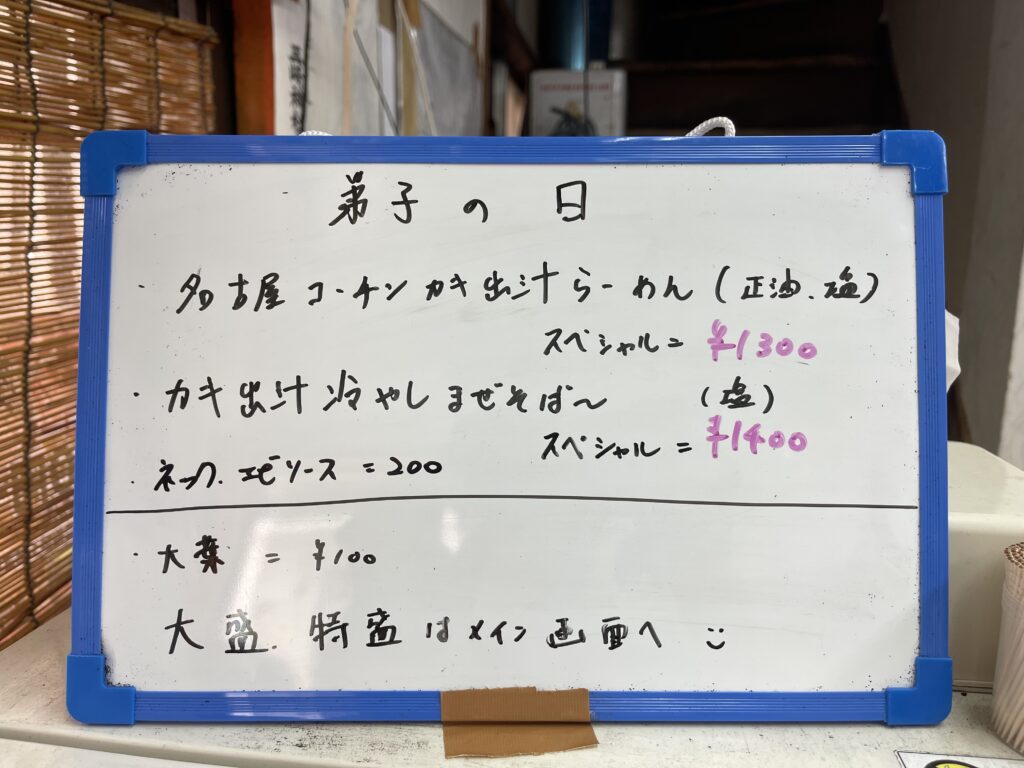 弟子の日
・名古屋コーチンカキ出汁らーめん(正油、塩)
スペシャル=¥1300
・カキ出汁冷やしまぜそば〜 (塩)
スペシャル=¥1400
・ネック、エビソース=200
・大葉=¥100
大盛、特盛はメイン画面へ